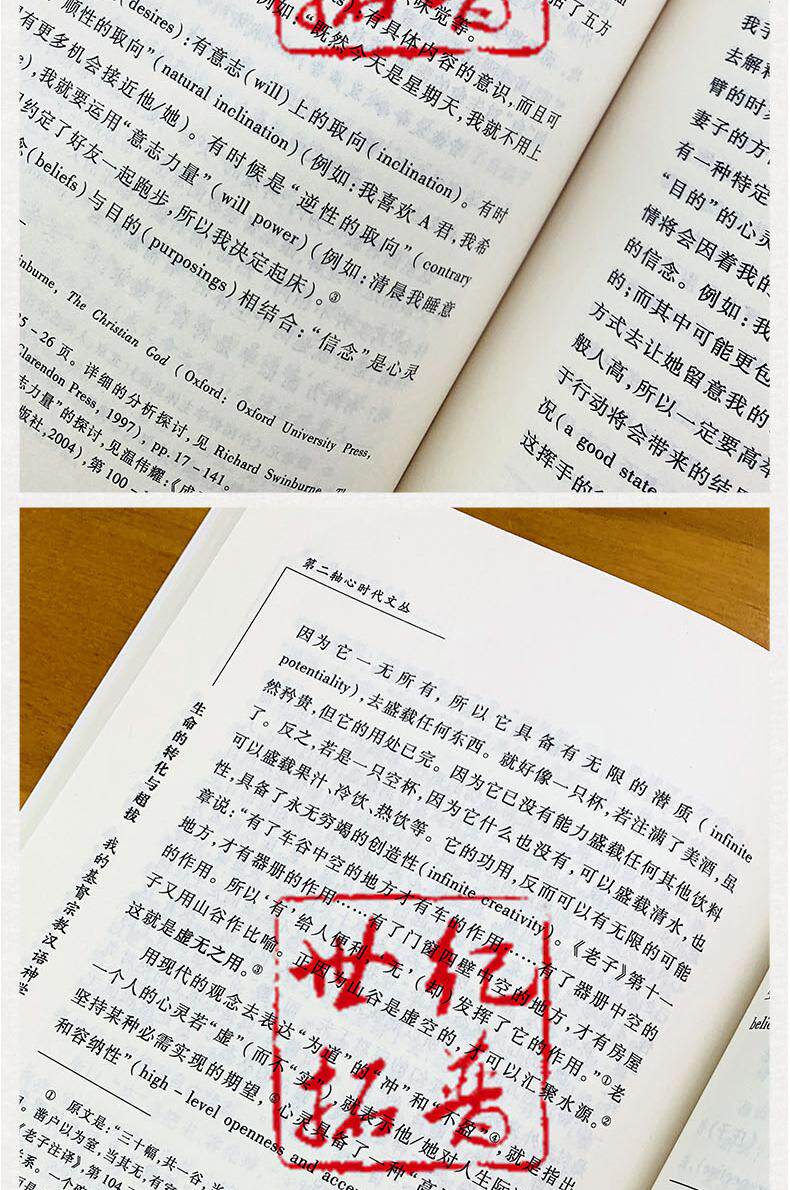 味觉等。
(desires):有具体内容的意识,而且可
例如:“既然今天是星期天,我就不用上
顺性的取向”(natural inclination)(例如:我喜欢 A 君,我希
有意志(will)上的取向(inclination)。有时
有更多机会接近他/她)。有时候是“逆性的取向”(contrary
我就要运用“意志力量”(will power)(例如:清晨我睡意
约定了好友一起跑步,所以我决定起床)。③
(beliefs)与目的(purposings)相结合:“信念”是心灵
The Christian God (Oxford: Oxford University Press,
25-26 页。详细的分析探讨,见 Richard Swinburne,
Clarendon Press, 1997), pp. 17-141。
的探讨,见温伟耀:
版社,2004),第 100
我手
去解释
臂的时
妻子的方
有一种特定
“目的”的心灵
情将会因着我的
的信念。例如:我
的;而其中可能更包
方式去让她留意我的
般人高,所以一定要高举
于行动将会带来的结果
况(a good state
这挥手的
第二轴心时代文丛
生命的转化与超拔 我的基督宗教汉语神学
因为它一无所有,所以它具备有无限的潜质(infinite
potentiality),去盛载任何东西。就好像一只杯,若注满了美酒,虽
然矜贵,但它的用处已完。因为它已没有能力盛载任何其他饮料
了。反之,若是一只空杯,因为它什么也没有,可以盛载清水,也
可以盛载果汁、冷饮、热饮等。它的功用,反而可以有无限的可能
性,具备了永无穷竭的创造性(infinite creativity)。《老子》第十一
章说:“有了车谷中空的地方才有车的作用……有了器册中空的
地方,才有器册的作用……有了门窗四壁中空的地方,才有房屋
的作用。所以‘有’给人便利,‘无’,(却)发挥了它的作用。”①老
子又用山谷作比喻。正因为山谷是虚空的,才可以汇聚水源。②
这就是虚无之用。③
用现代的观念去表达“为道”的“冲”和“不盈”④,就是指出
一个人的心灵若“虚”(而不“实”),就表示他/她对人生际
坚持某种必需实现的期望,⑤心灵具备了一种“高
和容纳性”(high-level openness and
① 原文是:“三十幅,共一谷,当
凿户以为室,当其无,有室
《老子注译》,第 104
世纪
拓普